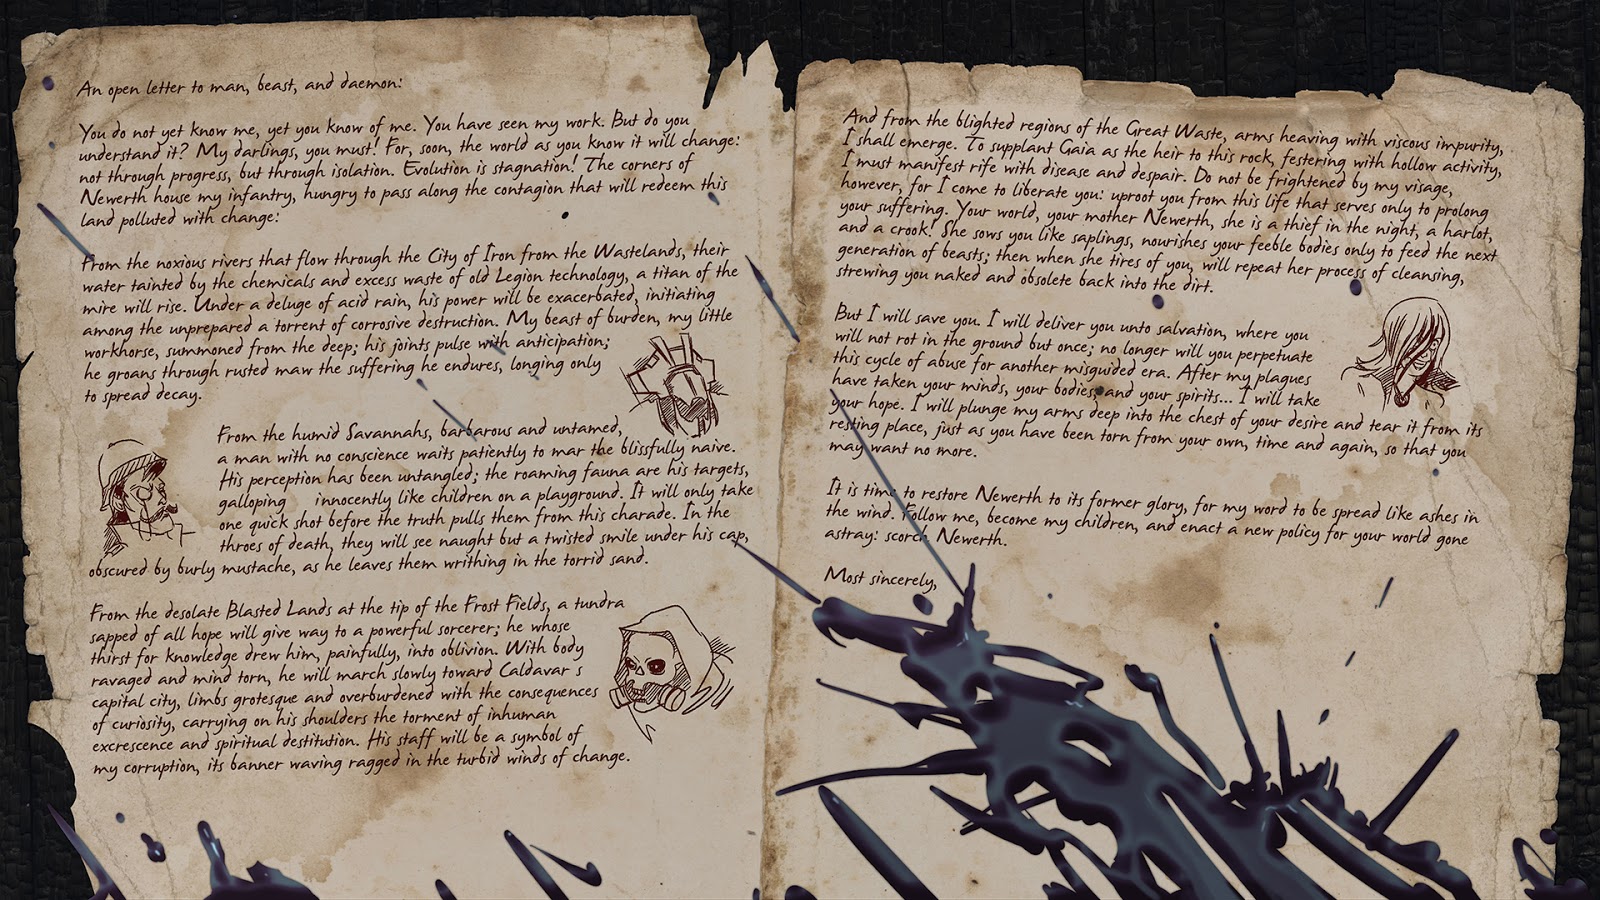 An open letter to man, beast, and daemon:
You do not yet know me, yet you know of me. You have seen my work. But do you
understand it? My darlings, you must! For, soon, the world as you know it will change:
not through progress, but through isolation. Evolution is stagnation! The corners of
Newerth house my infantry, hungry to pass along the contagion that will redeem this
land polluted with change:
From the noxious rivers that flow through the City of Iron from the Wastelands, their
water tainted by the chemicals and excess waste of old Legion technology, a titan of the
mire will rise. Under a deluge of acid rain, his power will be exacerbated, initiating
among the unprepared a torrent of corrosive destruction. My beast of burden, my little
workhorse, summoned from the deep; his joints pulse with anticipation;
he groans through rusted maw the suffering he endures, longing only
to spread decay.
From the humid Savannahs, barbarous and untamed,
a man with no conscience waits patiently to mar the blissfully naive.
His perception has been untangled; the roaming fauna are his targets,
galloping innocently like children on a playground. It will only take
one quick shot before the truth pulls them from this charade. In the
throes of death, they will see naught but a twisted smile under his cap,
obscured by burly mustache, as he leaves them writhing in the torrid sand.
From the desolate Blasted Lands at the tip of the Frost Fields, a tundra
sapped of all hope will give way to a powerful sorcerer; he whose
thirst for knowledge drew him, painfully, into oblivion. With body
ravaged and mind torn, he will march slowly toward Caldavar s
capital city, limbs grotesque and overburdened with the consequences
of curiosity, carrying on his shoulders the torment of inhuman
excrescence and spiritual destitution. His staff will be a symbol of
my corruption, its banner waving ragged in the turbid winds of change.
And from the blighted regions of the Great Waste, arms heaving with viscous impurity,
I shall emerge. To supplant Gaia as the heir to this rock, festering with hollow activity,
I must manifest rife with disease and despair. Do not be frightened by my visage,
however, for I come to liberate you: uproot you from this life that serves only to prolong
your suffering. Your world, your mother Newerth, she is a thief in the night, a harlot,
and a crook! She sows you like saplings, nourishes your feeble bodies only to feed the next
generation of beasts; then when she tires of you, will repeat her process of cleansing,
strewing you naked and obsolete back into the dirt.
But I will save you. I will deliver you unto salvation, where you
will not rot in the ground but once; no longer will you perpetuate
this cycle of abuse for another misguided era. After my plagues
have taken your minds, your bodies, and your spirits... I will take
your hope. I will plunge my arms deep into the chest of your desire and tear it from its
resting place, just as you have been torn from your own, time and again, so that you
may want no more.
It is time to restore Newerth to its former glory, for my word to be spread like ashes in
the wind. Follow me, become my children, and enact a new policy for your world gone
astray: scorch Newerth.
Most sincerely,